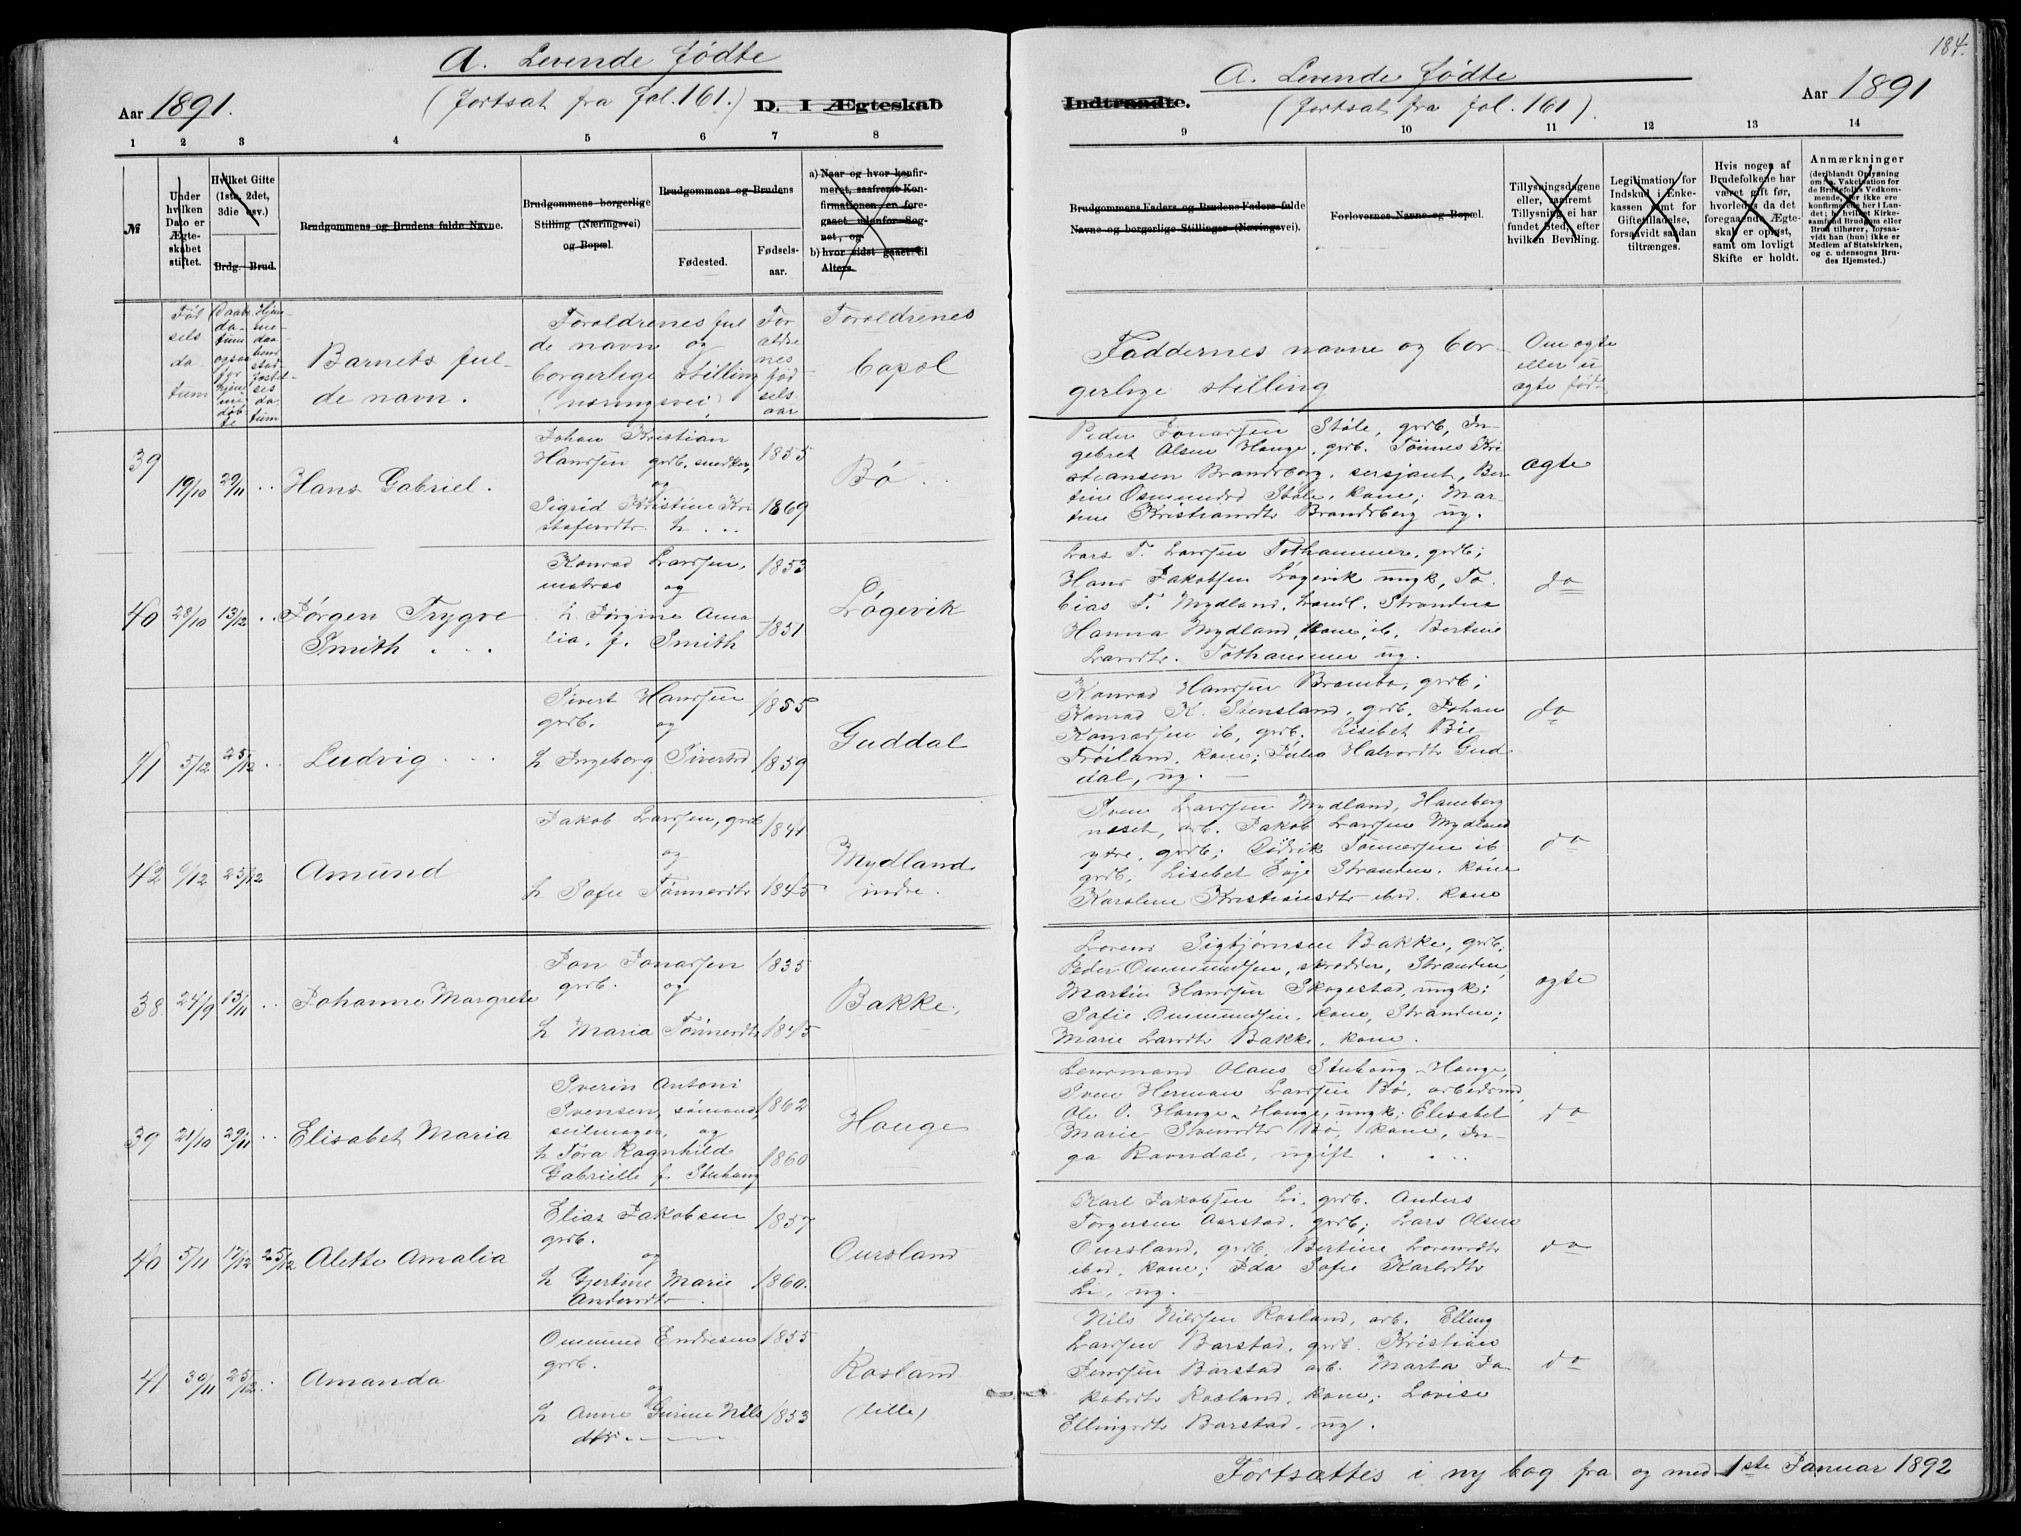 184.
A. Levende fødte
Aar 1891.
(fortsat fra fol. 161.)
D. I Ægteskab
1 2 3 4 5 6 7 8
№
Under hvilken Dato er Ægteskabet stiftet.
Hvilket Gifte (1ste, 2det, 3die osv.)
Brdg. Brud.
Brudgommens og Brudens fulde Navne.
Brudgommens borgerlige Stilling (Næringsvei) og Bopæl.
Brudgommens og Brudens
Fødested.
Fødselsaar.
a) Naar og hvor konfirmeret, saafremt Konfirmationen er foregaaet udenfor Sognet, og
b) hvor sidst gaaet til Alters.
Fødselsdatum
Barnets fulde navn.
Forældrenes fulde navne og borgerlige stilling (næringsvei)
Forældrenes fødselsaar
Forældrenes bopæl
39 19/10 29/11 Hans Gabriel.
Johan Kristian Hanssen grdb, snedker, og
Sigrid Kristine Kristofersdtr h.
1855
1869
Bø
40 28/10 13/12 Jørgen Trygve Smith
Konrad Larssen, matros og
h. Jørgine Amalia, f. Smith
1853
1851
Løgevik
41 5/12 25/12 Ludvig
Sivert Hanssen grdb. og
h Ingeborg Sivertsd
1855
1859
Guddal
42 6/12 25/12 Amund
Jakob Larssen, grdb og
h Sofie Tønnesdtr
1841
1845
Mydland indre.
38 24/9 15/11 Johanne Margrete
Jon Jonassen grdb. og
h Maria Tønnesdtr
1835
1845
Bakke,
39 21/10 29/11 Elisabet Maria
Sverin Antoni Svensen, sømand, seilmager, og
h Tora Ragnhild Gabrielle f. Stuhaug
1862
1860
Hauge
40 5/11 17/12 25/12 Alette Amalia
Elias Jakobsen grdb. og
h Gjertine Marie Andersdtr
1857
1860.
Oursland
41 30/11 25/12 Amanda
Ommund Endresen grdb. og
h Anne Gurine Nilsdtr
1855
1853
Rosland (lille)
A. Levende fødte
Indtraadte.
(fortsat fra fol. 161).
Aar 1891
9 10 11 12 13 14
Brudgommens Faders og Brudens Faders fulde Navne og borgerlige Stillinger (Næringsvei).
Forlovernes Navne og Bopæl.
Tillysningsdagene eller, saafremt Tillysning ei har fundet Sted, efter hvilken Bevilling.
Legitimation for Indskud i Enkekassen samt for Giftetilladelse, forsaavidt saadan tiltrænges.
Hvis nogen af Brudefolkene har været gift før, hvorledes da det foregaaende Ægteskab er opløst, samt om lovligt Skifte er holdt.
Anmærkninger
Faddernes navne og borgerlige stilling
Om ægte eller uægte født
Peder Jonassen Støle, grdb, Ingebret Olsen Hauge, grdb. Tønnes Kristiansen Brandsberg, sersjant, Bertine Osmundsd Støle, kone; Martine Kristiansdtr Brandsberg ug.
ægte
Lars T. Larssen Tothammer, grdb;
Hans Jakobsen Løgevik ungk, Tobias T. Mydland, Stranden
Hanna Mydland, kone, ib, Bertine
Larsdtr. Tothammer ug.
do
Konrad Hanssen Brambo, grdb;
Konrad K. Stensland, grdb. Johan
Konradsen ib, grdb. Lisebet
Frøiland, kone; Julia Halvorsdtr Guddal, ug.
do
Sven Larssen Mydland, Haneberg
neset, arb. Jakob Larssen Mydland
ydre, grdb; Tønnessen ib
grdb, Lisebet Eoje Stranden, kone
Karoline Kristiansdtr ibid. kone
do
Lorens Sigbjørnsen Bakke, grdb,
Peder Ommundsen, skrædder, Stranden,
Martin Hanssen Skogestad, ungk;
Sofie Ommundsen, kone, Stranden;
Marie Larsdtr Bakke, kone.
ægte
Lensmand Olaus Stuhaug Hauge,
Sven Herman Larssen Bø, arbeidsmd,
Ole O. Hauge, Hauge, ungk; Elisabet
Marie Svensdtr Bø, kone, Inga Ravndal, ugift
do
Karl Jakobsen Li, grdb. Anders
Torgersen Aarstad, grdb; Lars Olsen
Oursland, grdb, Bertine Lorensdtr
ibid. kone; Ida Sofie Karlsdtr
Li, ug.
do
Nils Nilssen Rosland, arb. Elling
Larssen Barstad, grdb. Kristian
Jenssen Barstad arb. Marta Jakobsdtr Rosland, kone; Lovise
Ellingsdtr Barstad, ug.
do
Fortsættes i ny bog fra og med 1ste Januar 1892